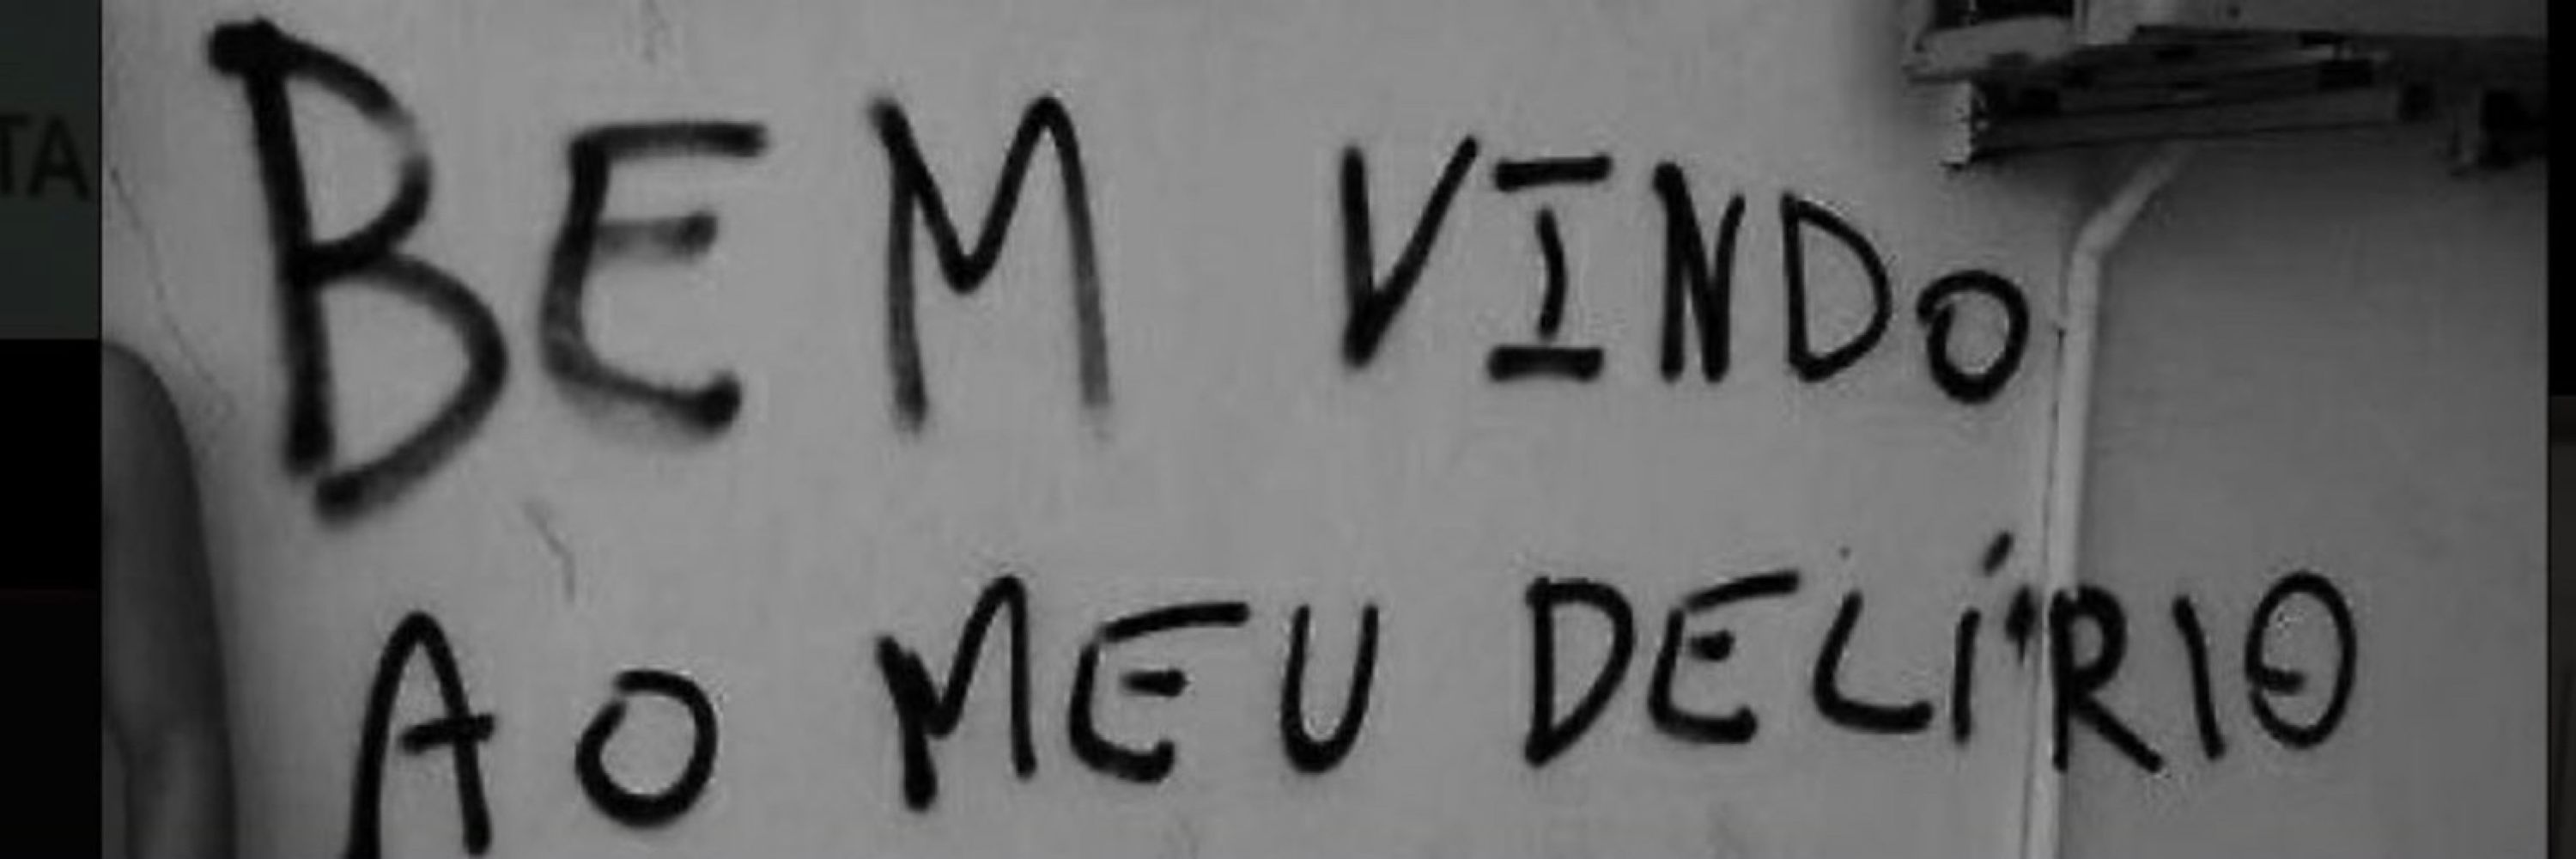 TA
BEM VINDO
AO MEU DELÍRIO